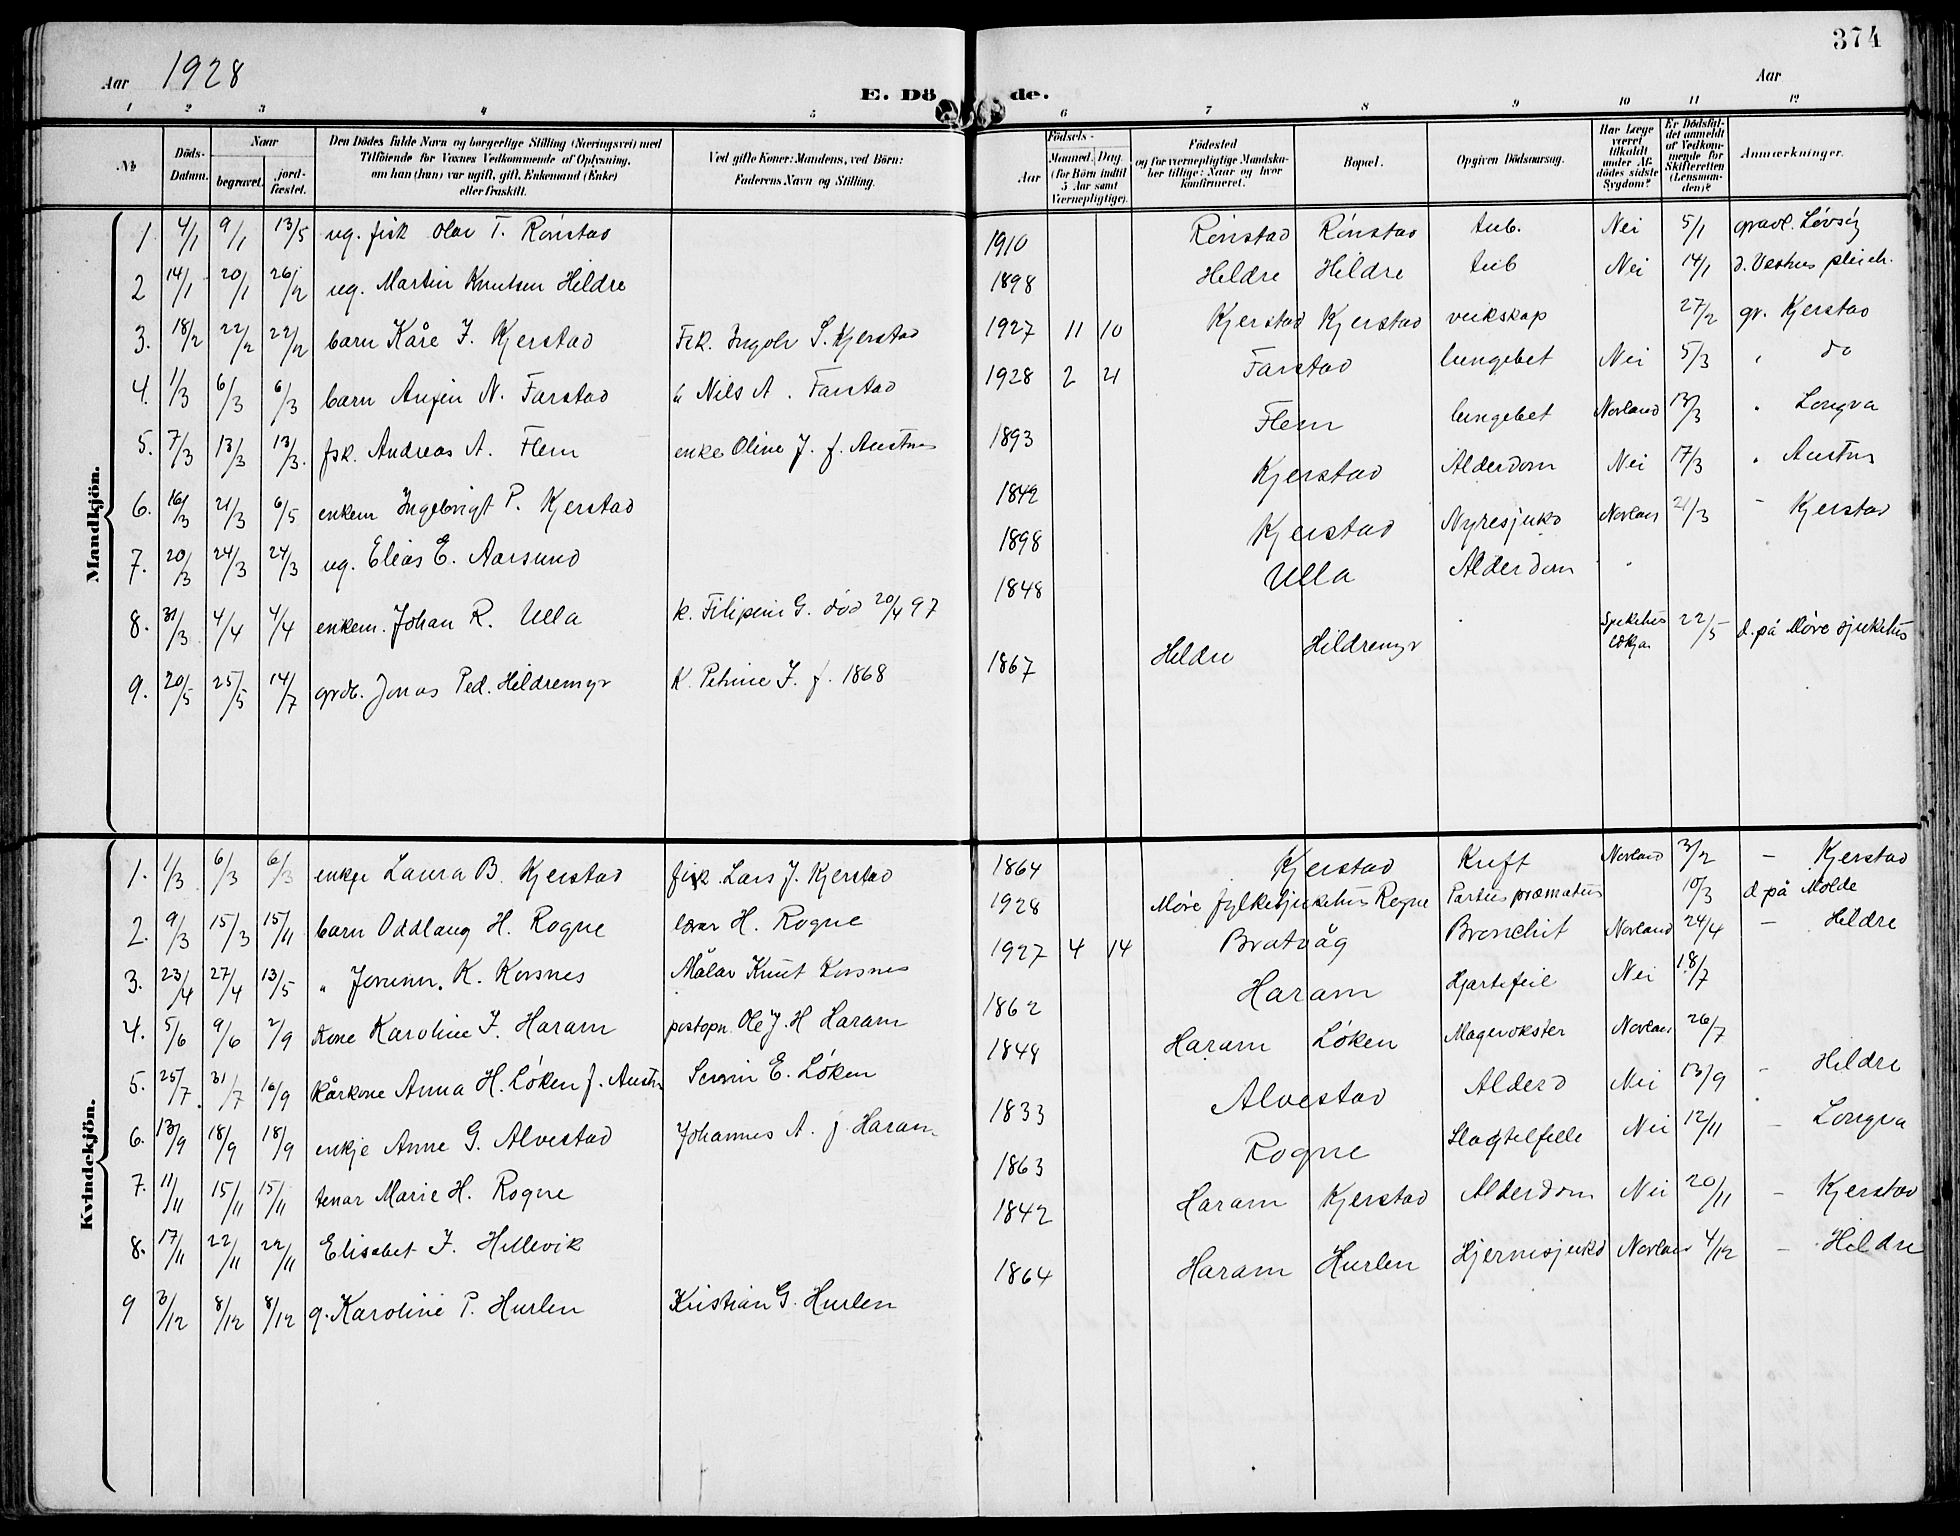 374
Aar 1928
Aar
E. Dö de.
1 2 3 4 5 6 7 8 9 10 11 12
No
Döds-Datum.
Naar
begravet.
jordfæstet.
Den Dödes fulde Navn og borgerlige Stilling (Næringsvei) med
Tilföiende for Voxnes Vedkommende af Oplysning,
om han (hun) var ugift, gift, Enkemand (Enke)
eller fraskilt.
Ved gifte Koner: Mandens, ved Börn:
Faderens Navn og Stilling.
Födsels-
Aar
Maaned. Dag.
(for Börn indtil
5 Aar samt
Værnepligtige).
Födested
og for værnepligtige Mandskaber
tillige: Naar og hvor
konfirmeret.
Bopæl.
Opgiven Dödsaarsag.
Har Læge
været
tilkaldt
under Afdödes
sidste
Sygdom?
Er Dödsfaldet
anmeldt
af Vedkommende
for
Skifteretten
(Lensmanden)?
Anmærkninger.
Mandkjön.
1. 4/1 9/1 13/5 ug. fisk Olav T. Rönstad 1910 Rönstad Rönstad tub. Nei 5/1 gravl. Lövsöy
2 14/1 20/1 26/2 ug. Martin Knutsen Hildre 1898 Hildre Hildre tub Nei 14/1 d. Vestnes pleieh.
3. 18/2 22/2 22/2 barn Kåre I. Kjerstad Fsk. Ingolv S. Kjerstad 1927 11 10 Kjerstad Kjerstad veikskap 27/2 gr. Kjerstad
4. 1/3 6/3 6/3 barn N. Farstad " Nils A. Farstad 1928 2 21 Farstad lungebet Nei 5/3 " do
5. 7/3 13/3 13/3. fsk. Andreas A. Flem enke Oline J. f. Austnes 1893 Flem lungebet Norland 13/3 " Longva
6. 16/3 21/3 6/5 enkem Ingebrigt P. Kjerstad 1842 Kjerstad Alderdom Nei 17/3 " Austnes
7. 20/3 24/3 24/3 ug. Elias E. Aarsund 1898 Kjerstad Nyresjukd Norland 21/3 " Kjerstad
8. 31/3 4/4 4/4 enkem. Johan R. Ulla k. Filipine G. död 20/4 97 1848 Ulla Alderdom "
9. 20/5 25/5 14/7 grdb. Jonas Ped. Hildremyr K. Petrine I. f. 1868 1867 Hildre Hildremyr Sjukehus 22/5 d. på Möre sjukehus
Kvindekjön.
1. 1/3 6/3 6/3 enkje Laura B. Kjerstad fisk Lars J. Kjerstad 1864 Kjerstad Kreft Norland 3/2 – Kjerstad
2. 9/3 15/3 15/11 barn Oddlaug H. Rogne lærar H. Rogne 1928 Möre fylkesjukehus Rogne Partus præmaturus 10/3 d. på Molde
3. 23/4 27/4 13/5 " Jorunn. K. Korsnes Målar Knut Korsnes 1927 4 14 Bratvåg Bronchit Norland 24/4 – Hildre
4. 5/6 9/6 2/9 Kone Karoline I. Haram postopn. Ole J. H Haram 1862 Haram Hjartefeil Nei 18/7
5. 25/7 31/7 16/9 Kårkone Anna H. Löken f. Austn E. Löken 1848 Haram Löken Magevokster Norland 26/7
6. 13/9 18/9 18/9 enkje Anne G. Alvestad Johannes A. f. Haram 1833 Alvestad Alderd Nei 13/9 – Hildre
7. 11/11 15/11 15/11 tenar Marie H. Rogne 1863 Rogne Slagtilfelle Nei 12/11 – Longva
8. 17/11 22/11 22/11 Elisabet I. Hellevik 1842 Haram Kjerstad Alderdom Nei 20/11 – Kjerstad
9 3/12 8/12 8/12 g. Karoline P. Hurlen Kristian G. Hurlen 1864 Haram Hurlen Hjernesjukd Norland 4/12 – Hildre